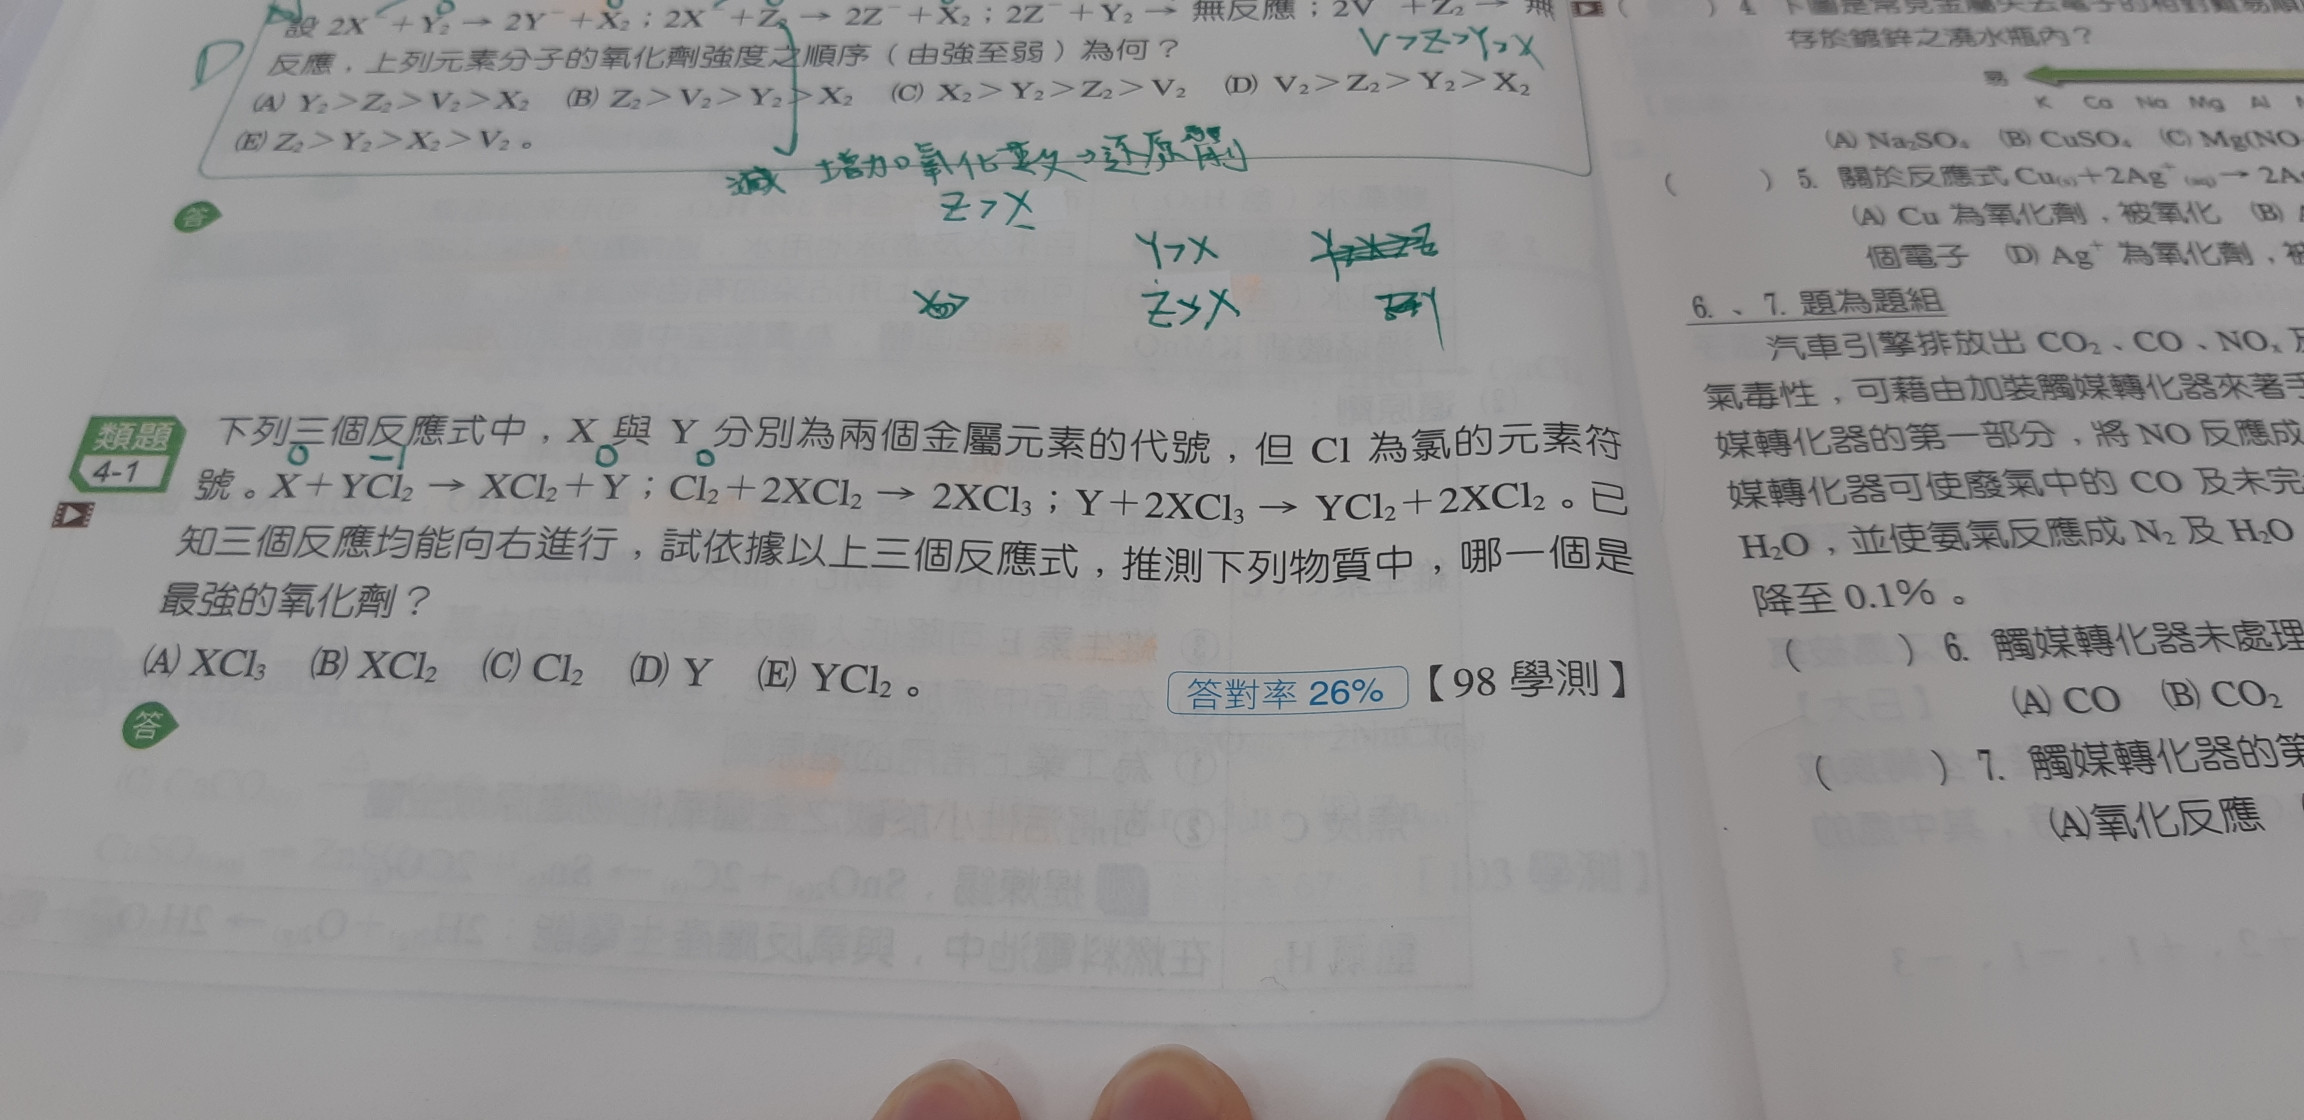 設 2X⁻+Y₂→2Y⁻+X₂；2X⁻+Z₂→2Z⁻+X₂；2Z⁻+Y₂→無反應；2V⁻+Z₂→無
反應，上列元素分子的氧化劑強度之順序（由強至弱）為何？
V>Z>Y>X
(A) Y₂>Z₂>V₂>X₂ (B) Z₂>V₂>Y₂>X₂ (C) X₂>Y₂>Z₂>V₂ (D) V₂>Z₂>Y₂>X₂
(E) Z₂>Y₂>X₂>V₂。
D
減 增加
氧化數→還原劑
答
Z>X
Y>X
Z>X
類題
4-1
下列三個反應式中，X 與 Y 分別為兩個金屬元素的代號，但 Cl 為氯的元素符
0 -1 0 0
號。X+YCl₂→XCl₂+Y；Cl₂+2XCl₂→2XCl₃；Y+2XCl₃→YCl₂+2XCl₂。已
知三個反應均能向右進行，試依據以上三個反應式，推測下列物質中，哪一個是
最強的氧化劑？
(A) XCl₃ (B) XCl₂ (C) Cl₂ (D) Y (E) YCl₂。
答對率 26% 【98 學測】
答
存於鍍鋅之澆水瓶內？
易
K Ca Na Mg Al
(A) Na₂SO₄ (B) CuSO₄ (C) Mg(NO
( ) 5. 關於反應式 Cu(s)+2Ag⁺(aq)→2A
(A) Cu 為氧化劑，被氧化 (B)
個電子 (D) Ag⁺ 為氧化劑，被
6.、7. 題為題組
汽車引擎排放出 CO₂、CO、NOₓ 及
氣毒性，可藉由加裝觸媒轉化器來著手
媒轉化器的第一部分，將 NO 反應成
媒轉化器可使廢氣中的 CO 及未完
H₂O，並使氨氣反應成 N₂ 及 H₂O
降至 0.1%。
( ) 6. 觸媒轉化器未處理
(A) CO (B) CO₂
( ) 7. 觸媒轉化器的第
(A)氧化反應